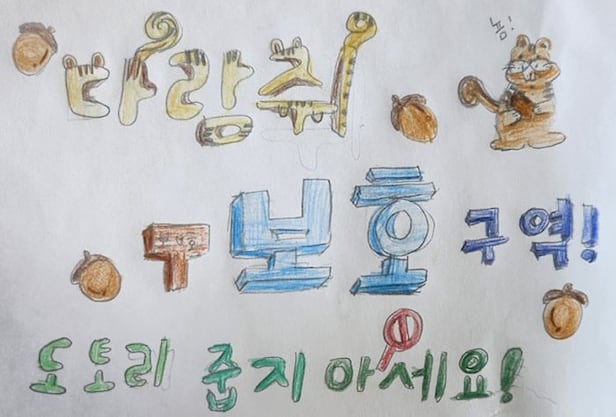 다람쥐
보호 구역!
도토리 줍지 마세요!